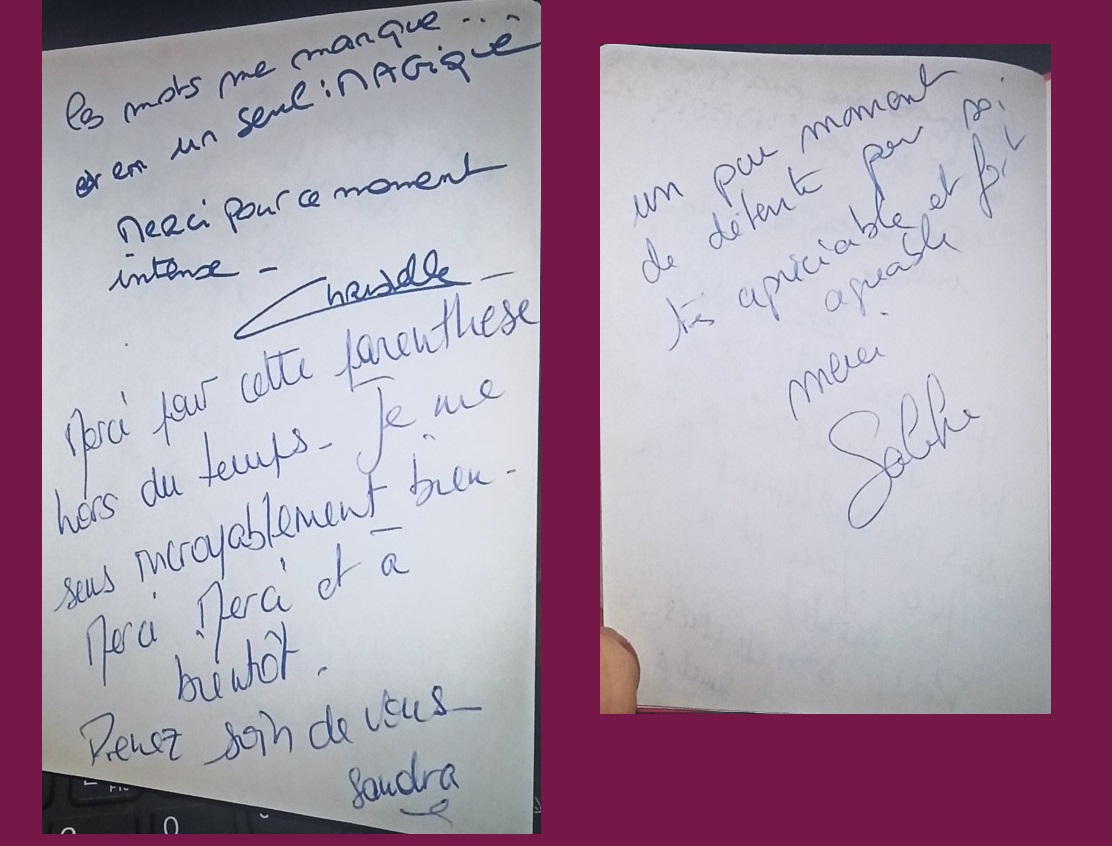 les mots me manque ...
et en un seul : MAGiQUE
Merci pour ce moment
intense -
Merci pour cette parenthese
hors du temps - Je me
sens incroyablement bien -
Merci Merci et à
bientôt.
Prenez soin de vous
Sandra
un peu moment
de détente pour soi
très apréciable et fort
agréable
merci